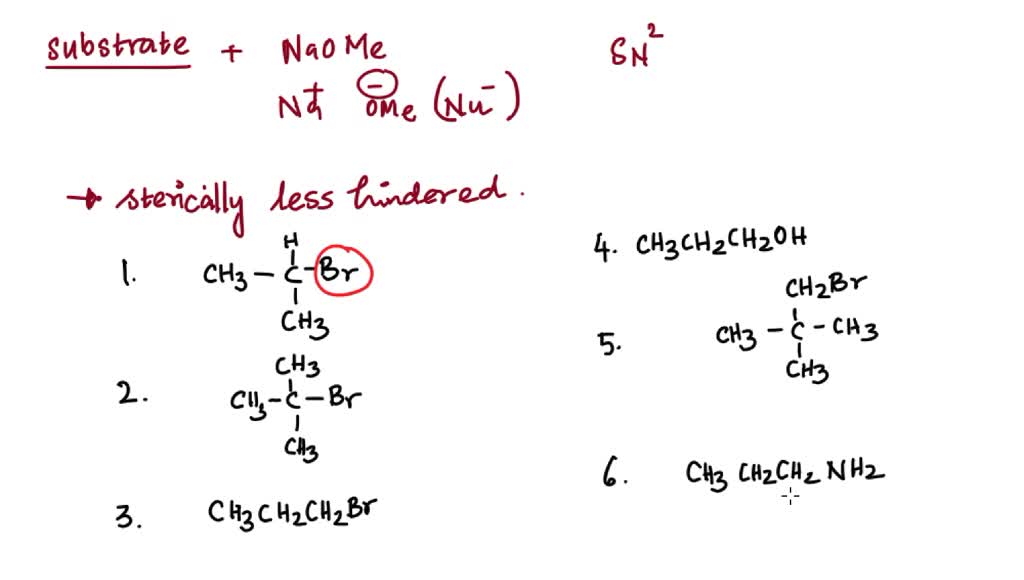 substrate + NaOMe SN²
Na⁺ ⊖OMe (Nu⁻)
→ sterically less hindered.
1. H
CH₃ – C – Br
CH₃
2. CH₃
CH₃ – C – Br
CH₃
3. CH₃CH₂CH₂Br
4. CH₃CH₂CH₂OH
5. CH₂Br
CH₃ – C – CH₃
CH₃
6. CH₃ CH₂CH₂ NH₂